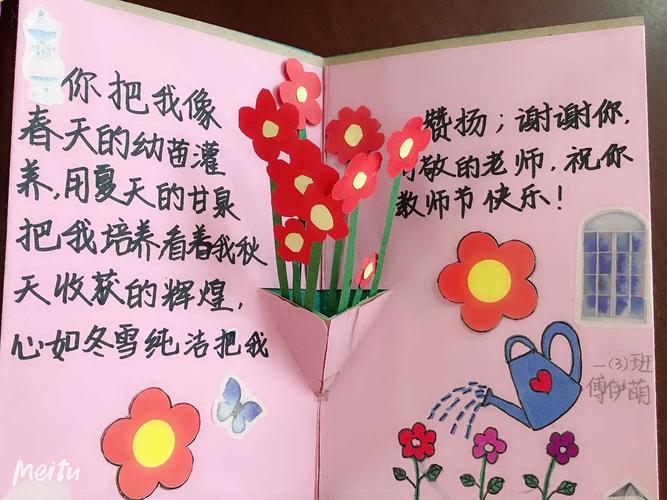 你把我像
春天的幼苗灌
养,用夏天的甘泉
把我培养,看着我秋
天收获的辉煌,
心如冬雪纯洁把我
赞扬;谢谢你,
敬的老师,祝你
教师节快乐!
一(3)班
傅伊萌
Meitu